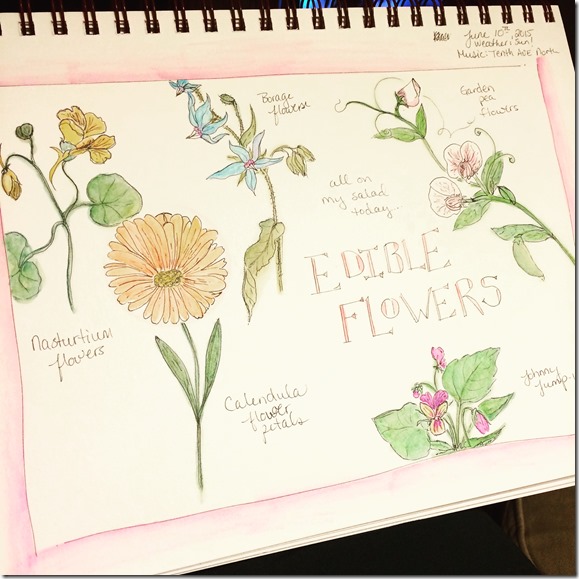 June 10th, 2015
weather: sun!
Music: Tenth Ave North
Borage
flowers
Garden
pea
flowers
all on
my salad
today...
EDIBLE
FLOWERS
Nasturtium
flowers
Calendula
flower
petals
Johnny
Jump-